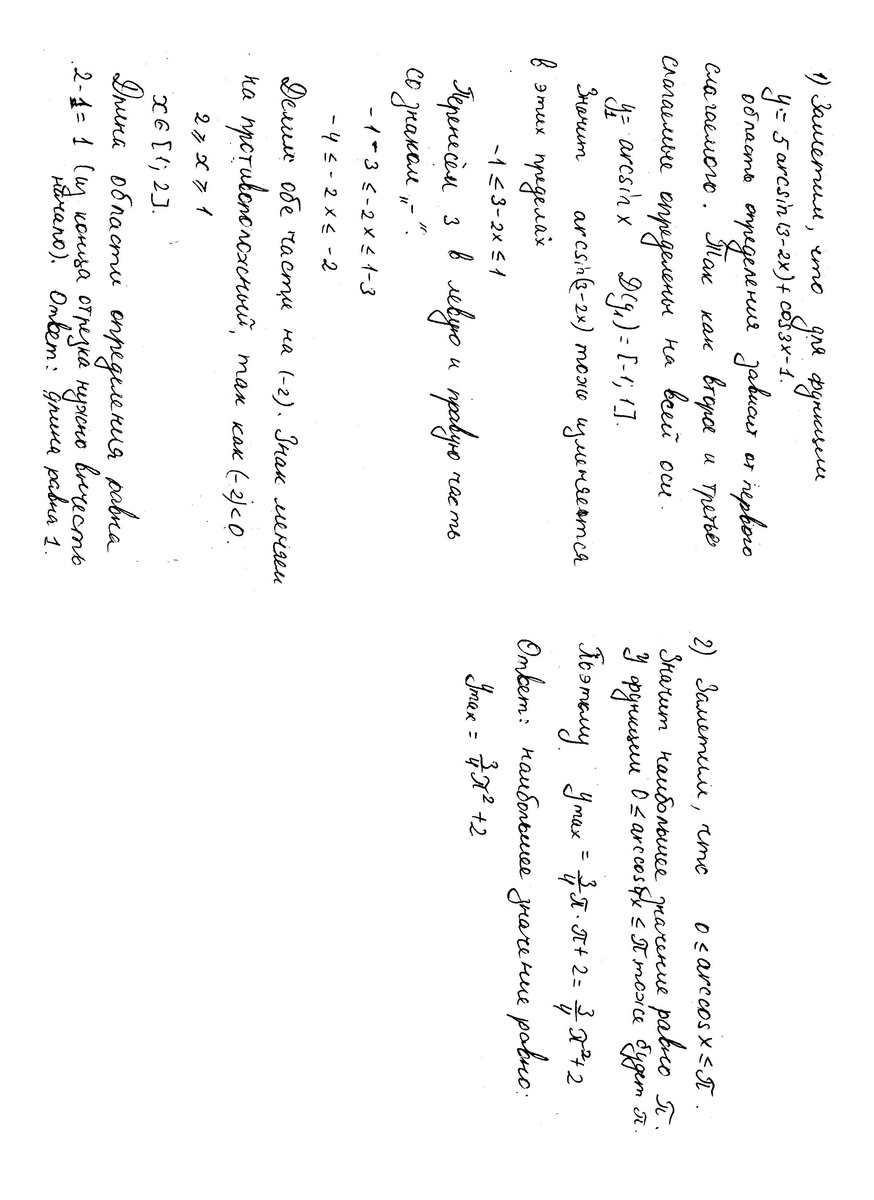 1) Заметим, что для функции
y = 5 arcsin(3-2x) + cos3x - 1.
область определения зависит от первого
слагаемого. Так как второе и третье
слагаемые определены на всей оси.
y₁ = arcsin x D(y₁) = [-1; 1].
Значит arcsin(3-2x) тоже изменяется
в этих пределах
-1 ≤ 3-2x ≤ 1
Перенесём 3 в левую и правую часть
со знаком „-“.
-1-3 ≤ -2x ≤ 1-3
-4 ≤ -2x ≤ -2
Делим обе части на (-2). Знак меняем
на противоположный, так как (-2)<0.
2 ≥ x ≥ 1
x ∈ [1; 2].
Длина области определения равна
2-1 = 1 (из конца отрезка нужно вычесть
начало). Ответ: длина равна 1.
2) Заметим, что 0 ≤ arccos x ≤ π.
Значит наибольшее значение равно π.
У функции 0 ≤ arccos 4x ≤ π тоже будет π.
Поэтому y max = 3/4 π · π + 2 = 3/4 π² + 2
Ответ: наибольшее значение равно:
y max = 3/4 π² + 2